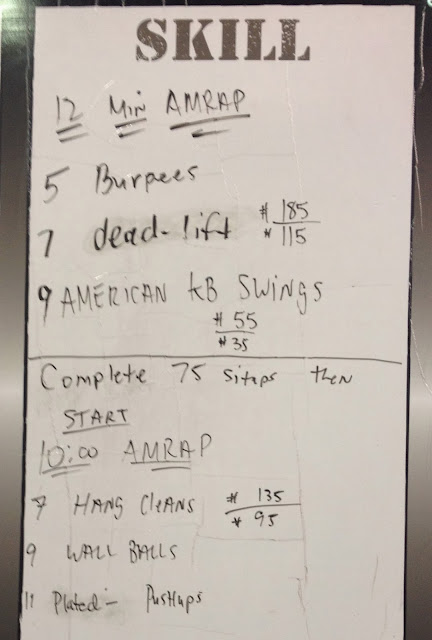 SKILL
12 Min AMRAP
5 Burpees
7 dead-lift # 185
# 115
9 AMERICAN KB SWINGS
# 55
# 35
Complete 75 situps then
START
10:00 AMRAP
7 HANG CLEANS # 135
# 95
9 WALL BALLS
11 Plated- Pushups